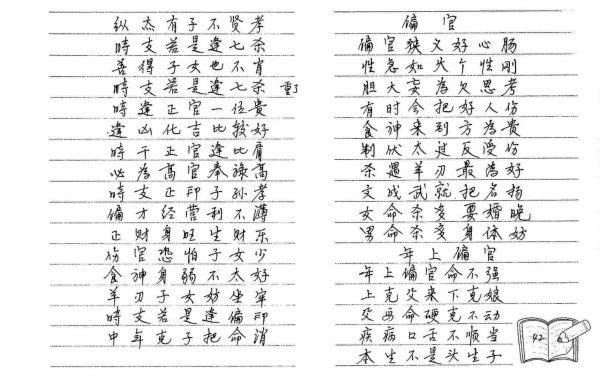 纵杰有子不贤孝
時支若是逢七杀
善得子女也不肖
時支若是逢七杀 重了
時逢正官一位貴
逢凶化吉比較好
時干正官逢比肩
必為高官奉祿高
時支正印子孙孝
偏才经营利不薄
正财身旺生财乐
伤官恐怕子女少
食神身弱不太好
羊刃子女妨坐牢
時支若是逢偏印
中年克子把命消
偏官
偏官狭义好心肠
性急如火个性刚
胆大妄為欠思考
有时会把好人伤
食神来到方為貴
制伏太过反受伤
杀遇羊刃最為好
文成武就把名扬
女命杀多要婚晚
男命杀多身体妨
年上偏官
年上偏官命不强
上克父来下克娘
父母命硬克不动
疾病口舌不顺当
本生不是头生子
42